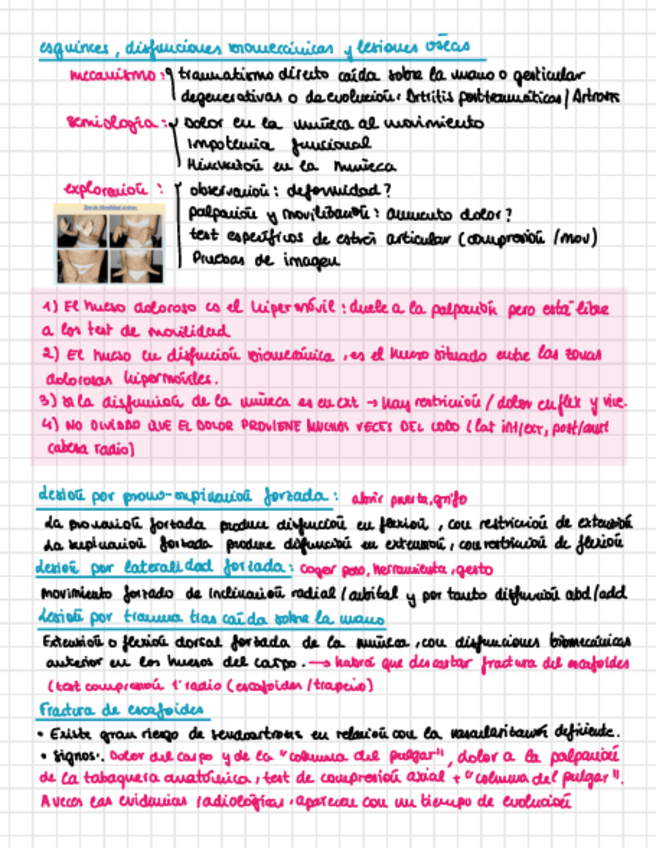 esguinces, disfunciones biomecánicas y lesiones óseas
mecanismo: traumatismo directo caída sobre la mano o gesticular
degenerativas o de evolución: Artritis posttraumáticas / Artrosis
semiología: Dolor en la muñeca al movimiento
Impotencia funcional
Hinchazón en la muñeca
exploración: observación: deformidad?
palpación y movilización: aumento dolor?
test específicos de estrés articular (compresión / mov)
Pruebas de imagen
1) El hueso doloroso es el hipermóvil: duele a la palpación pero está libre
a los test de movilidad
2) El hueso en disfunción biomecánica, es el hueso situado entre las zonas
dolorosas hipermóviles.
3) si la disfunción de la muñeca es en ext → hay restricción / dolor en flex y vice.
4) NO OLVIDAR QUE EL DOLOR PROVIENE MUCHAS VECES DEL CODO (lat int/ext, post/ant
cabeza radio)
Lesión por prono-supinación forzada: abrir puerta, grifo
La pronación forzada produce disfunción en flexión, con restricción de extensión
La supinación forzada produce disfunción en extensión, con restricción de flexión
Lesión por lateralidad forzada: coger peso, herramienta, gesto
movimiento forzado de inclinación radial / cubital y por tanto disfunción abd/add
Lesión por trauma tras caída sobre la mano
Extensión o flexión dorsal forzada de la muñeca, con disfunciones biomecánicas
anterior en los huesos del carpo. → habrá que descartar fractura del escafoides
(test compresión 1º radio (escafoides / trapecio)
Fractura de escafoides
• Existe gran riesgo de seudoartrosis en relación con la vascularización deficiente.
• signos: Dolor del carpo y de la "columna del pulgar", dolor a la palpación
de la tabaquera anatómica, test de compresión axial + "columna del pulgar".
A veces las evidencias radiológicas, aparecen con un tiempo de evolución